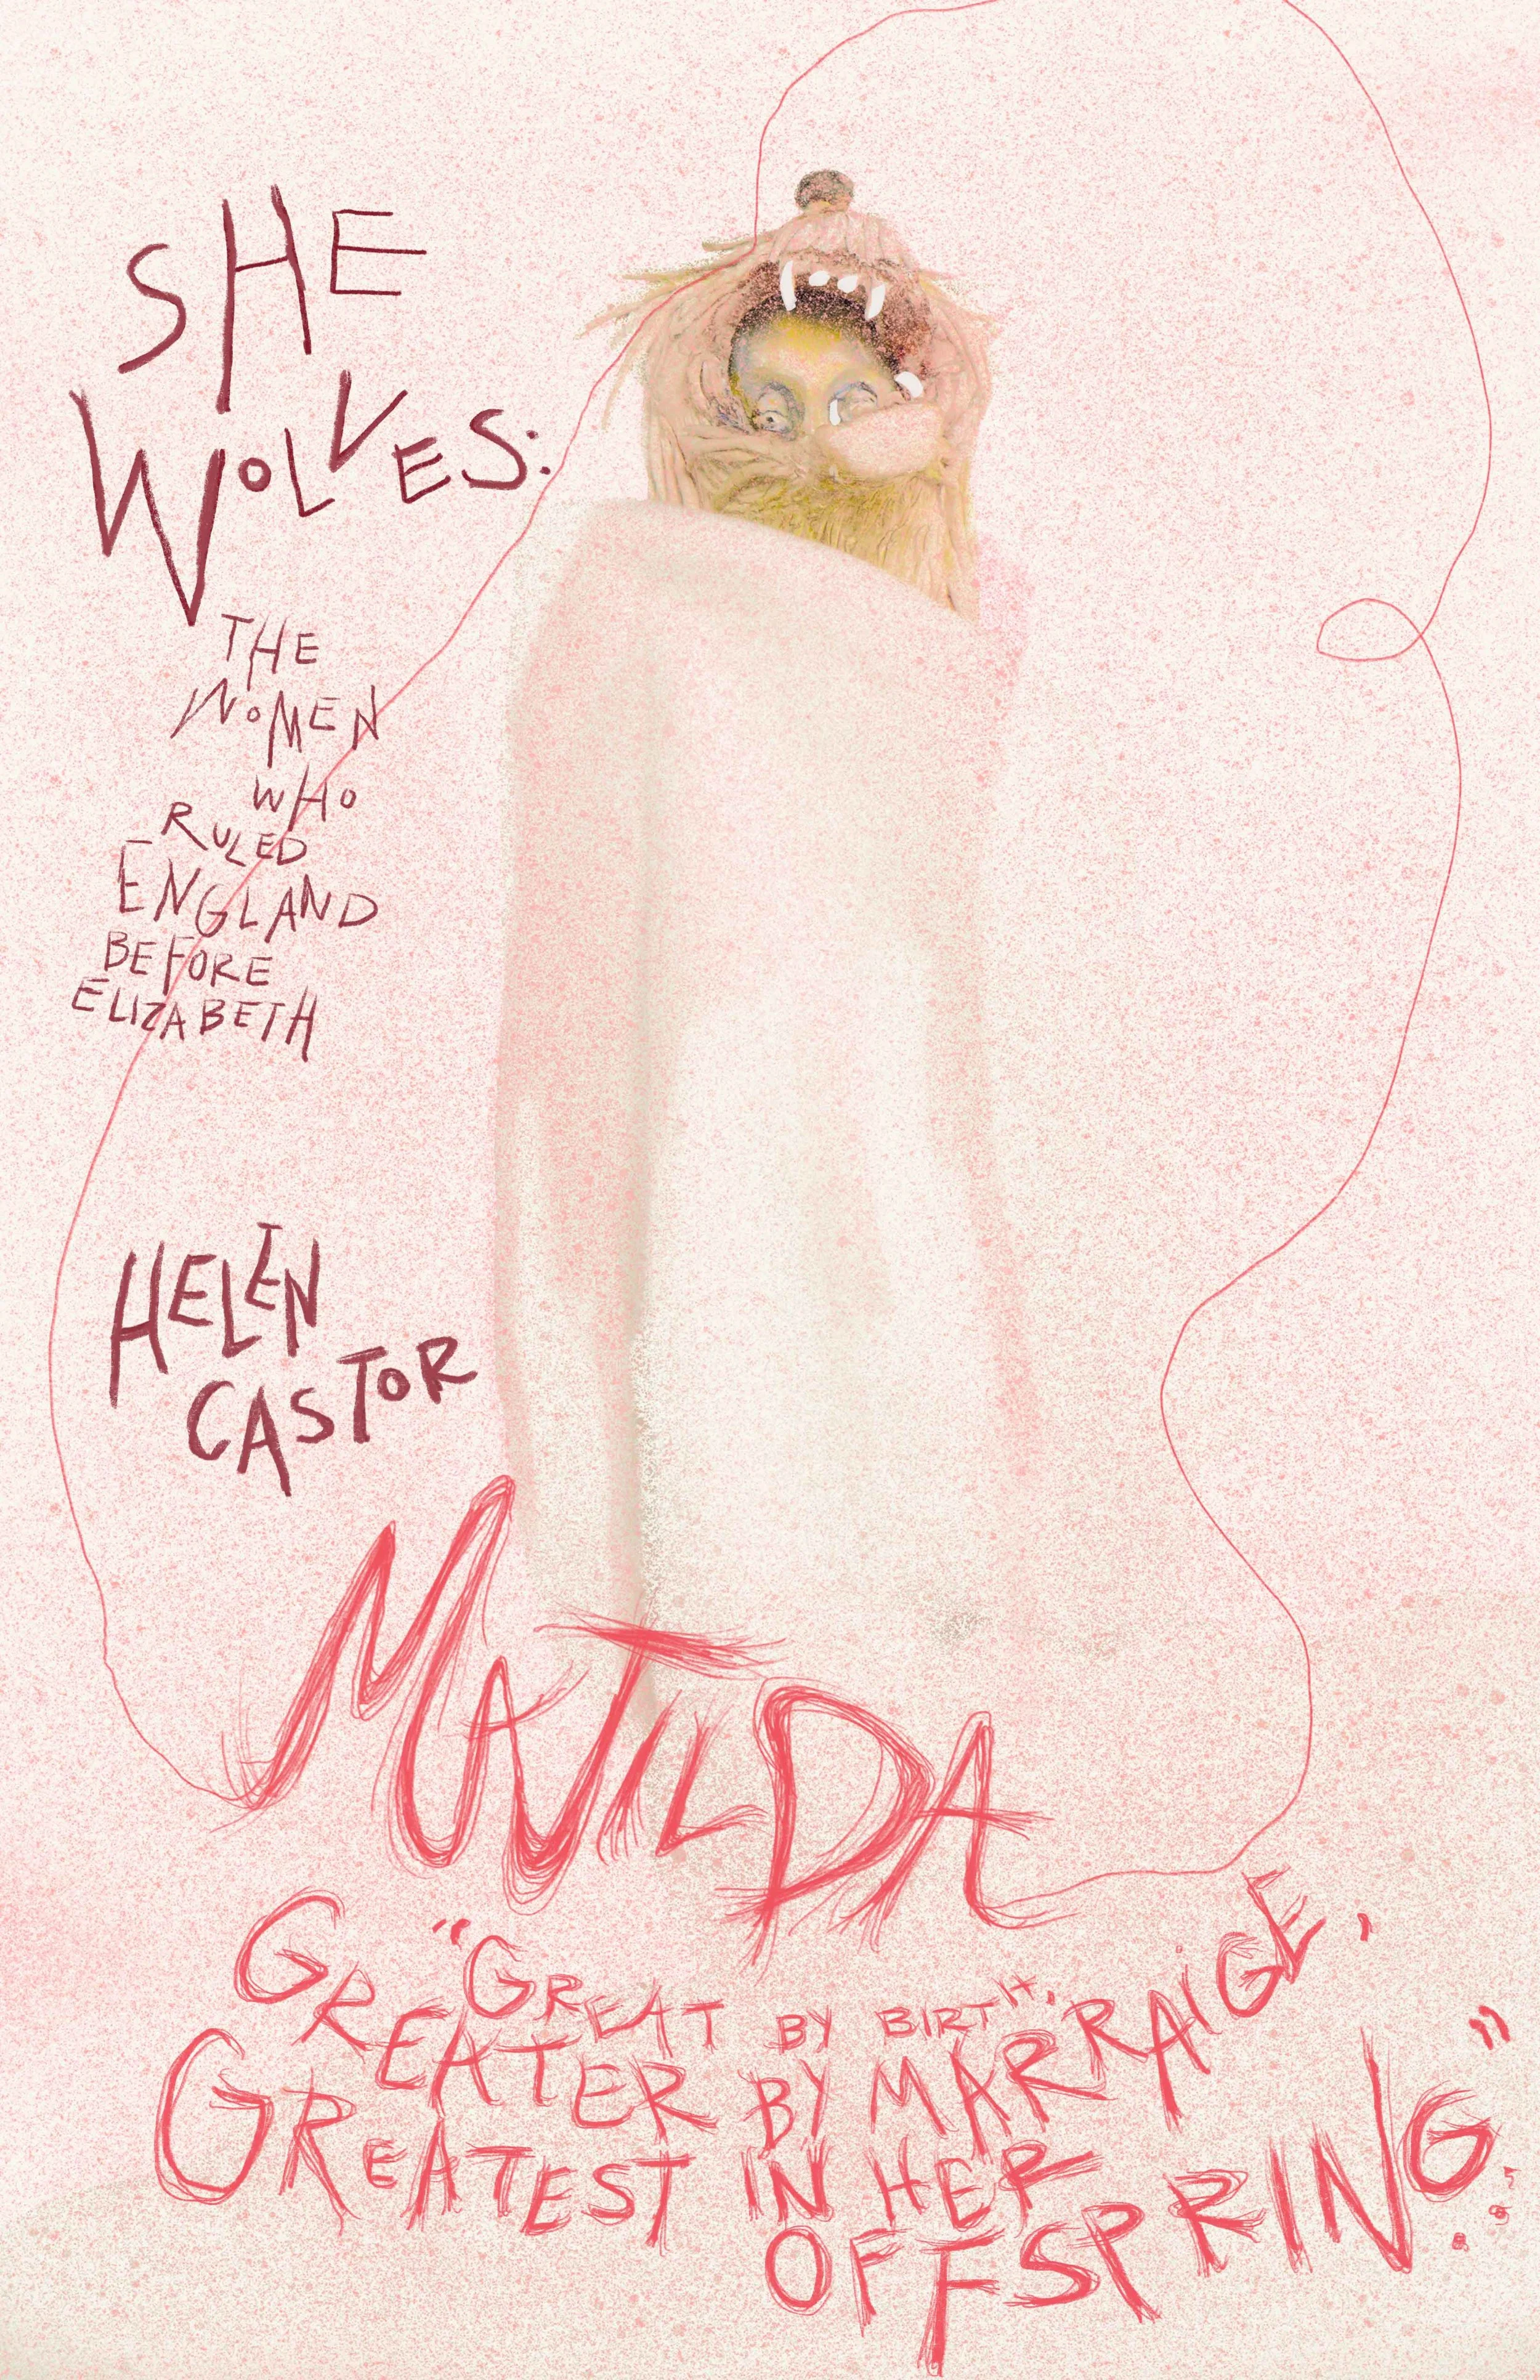 SHE
WOLVES:
THE
WOMEN
WHO
RULED
ENGLAND
BEFORE
ELIZABETH
HELEN
CASTOR
MATILDA
"GREAT BY BIRTH,
GREATER BY MARRAIGE,
GREATEST IN HER
OFFSPRING."